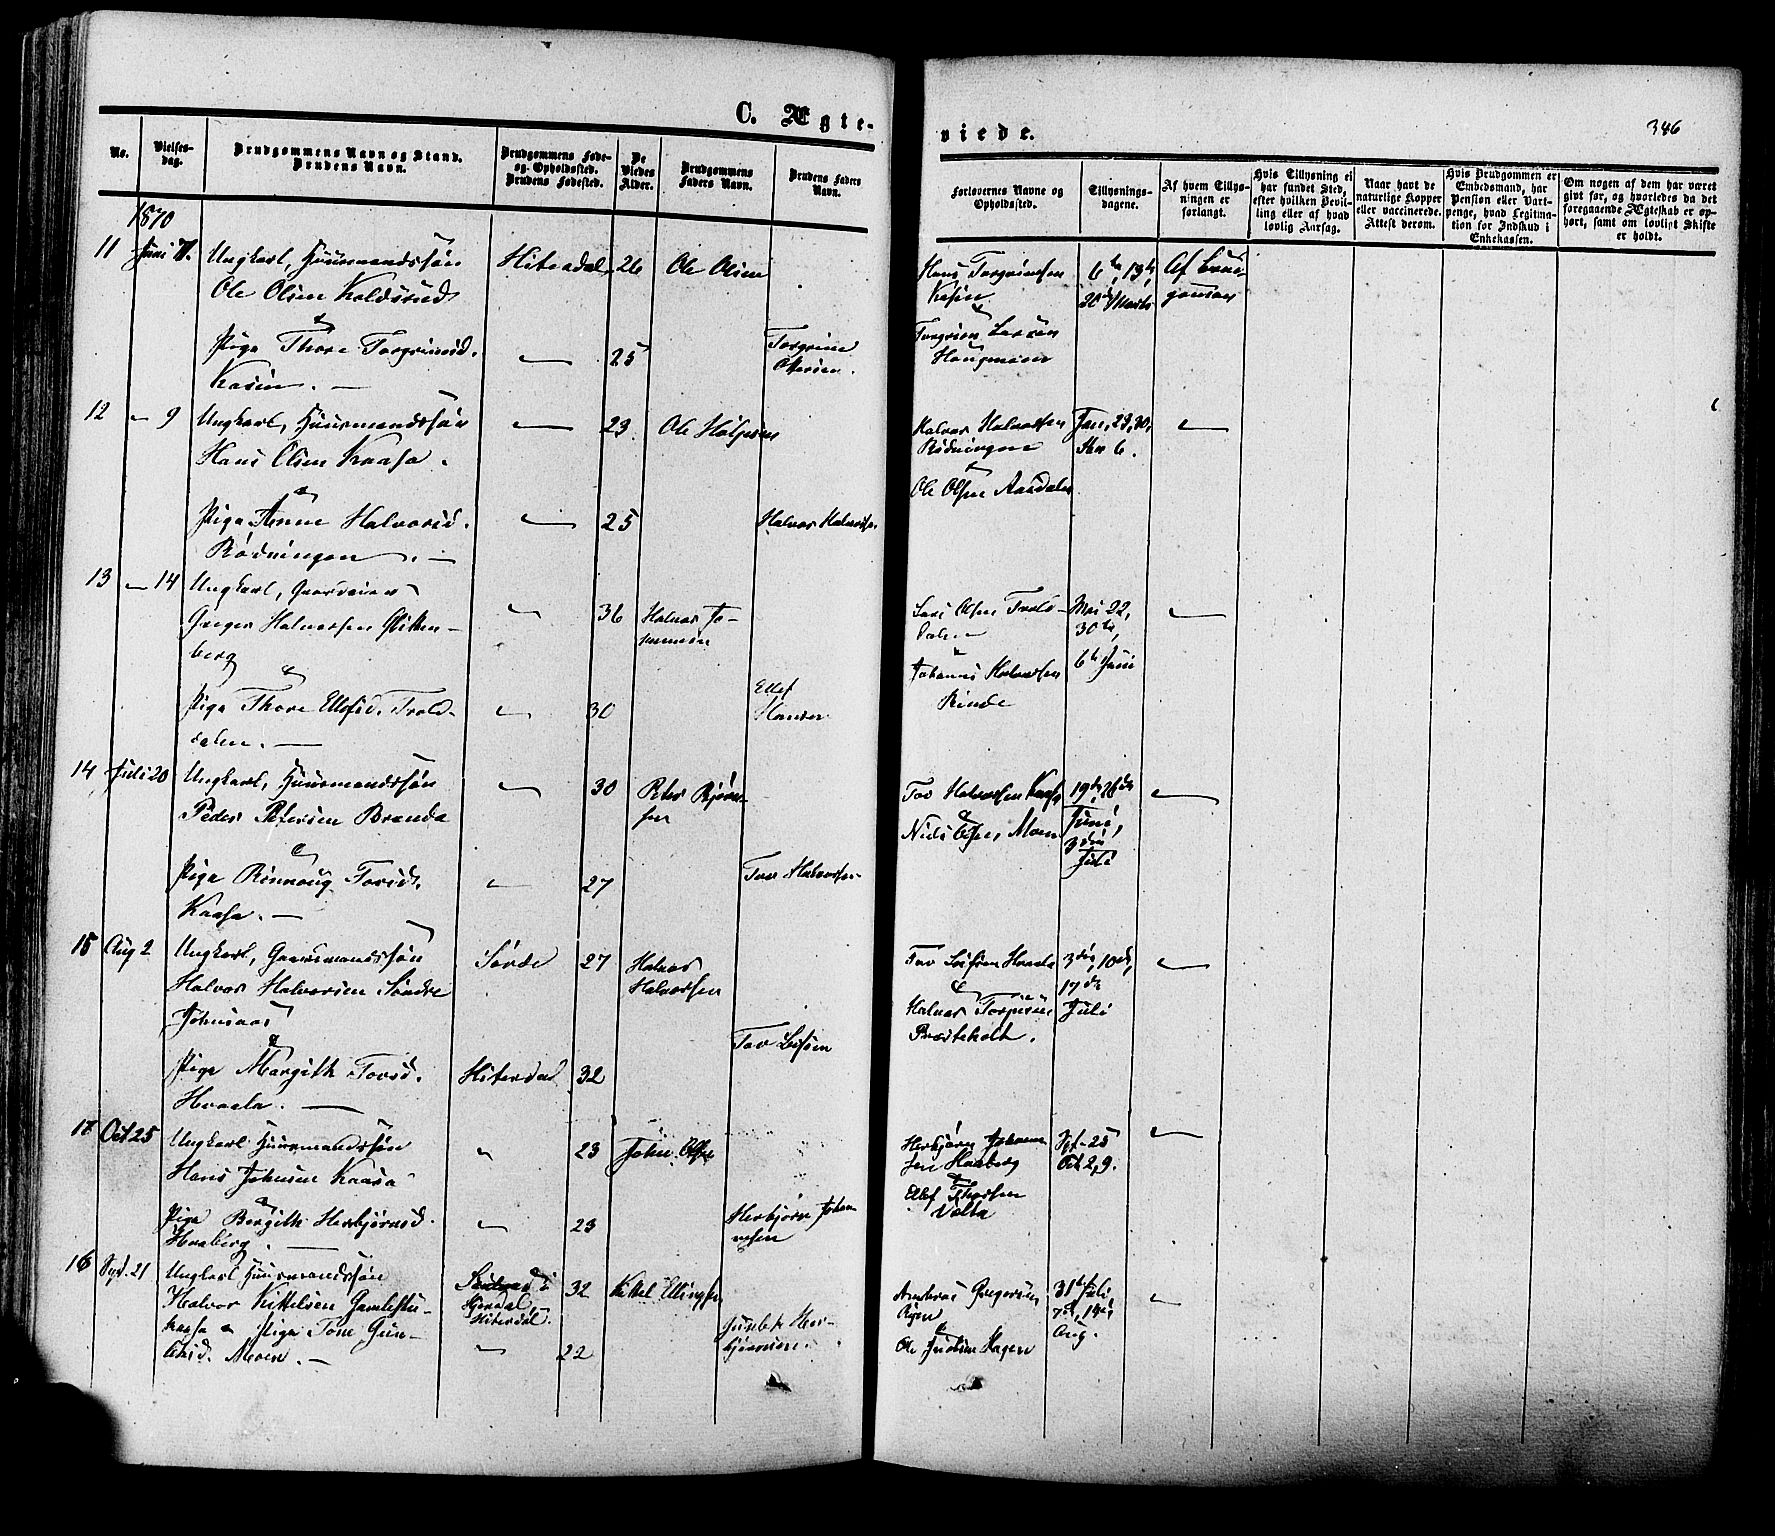 C. Ægte-
viede.
346
No.
Vielses-
dag.
Brudgommens Navn og Stand.
Brudens Navn.
Brudgommens Føde-
og Opholdssted.
Brudens Fødested.
De
Viedes
Alder.
Brudgommens
Faders Navn.
Brudens Faders
Navn.
Forlovernes Navne og
Opholdssted.
Tillysnings-
dagene.
Af hvem Tillys-
ningen er
forlangt.
Hvis Tillysning ei
har fundet Sted,
efter hvilken Bevil-
ling eller af hvad
lovlig Aarsag.
Naar havt de
naturlige Kopper
eller vaccinerede.
Attest derom.
Hvis Brudgommen er
Embedsmand, har
Pension eller Vart-
penge, hvad Legitima-
tion for Indskud i
Enkekassen.
Om nogen af dem har været
gift før, og hvorledes da det
foregaaende Ægteskab er op-
hørt, samt om lovligt Skifte
er holdt.
1870
11 Juni Ungkarl, Huusmandssøn Hiterdal 26 Ole Olsen
Ole Olsen Kaldsrud
&
Pige Thore Torgrimsd. — 25 Torgrim
Kasin. —
Hans Torgrimsen 6te, 13de,
Kasin 20de Marts
&
12 — 9 Ungkarl, Huusmandssøn — 23
Hans Olsen Kaasa.
&
Pige Anne Halvorsd. — 25 Halvor Halvorsen
Rødningen. —
Halvor Halvorsen Jan. 23, 30,
Rødningen 6. —
&
Ole Olsen Aasdalen
13 — 14 Ungkarl,
Greger Halvorsen — 36 Halvor
berg
&
Pige Thore Ellefsd. Trold- — 30 Ellef
dalen. — Hansen
Olsen Trold- Mai 22, —
dalen 30te,
& 6te Juni
Johannes Halvorsen
Rinde
14 Juli 20 Ungkarl, Huusmandssøn — 30 Peter Bjørn-
Peder Petersen Branda sen
&
Pige Rønnoug Tovsd. — 27 Tov Halvorsen
Kaasa. —
Tov Halvorsen Kaasa 19de, 26de —
& Juni,
Niels Olsen Moen 3die
Juli
15 Aug 2 Ungkarl, Gaardmandssøn Sovde 27 Halvor
Halvor Halvorsen Søndre Halvorsen
Johnsaas
&
Pige Margith Tovsd. Hiterdal 32 Tov Leifsen
Hvaala. —
Tov Leifsen Hvaala 3die, 10de, —
& 17de
Halvor Juli
17 Oct 25 Ungkarl Huusmandssøn — 23 John Olsen
Hans Johnsen Kaasa
&
Pige Bergith Herbjørnsd. — 23 Herbjørn Johan-
Hvaberg. — nesen
Herbjørn Johanne- Spt. 25 —
sen Hvaberg Oct 2, 9.
&
Ellef
16 Spt. 21 Ungkarl Huusmandssøn 32 Kittel Ellingsen
Halvor Kittelsen Gamlestu- Hiterdal.
kaasa & Pige Tone Gun- — 22
Moen. —
Andreas Gregersen 31te Juli, —
& 7de, 14de
Ole Hagen Aug.